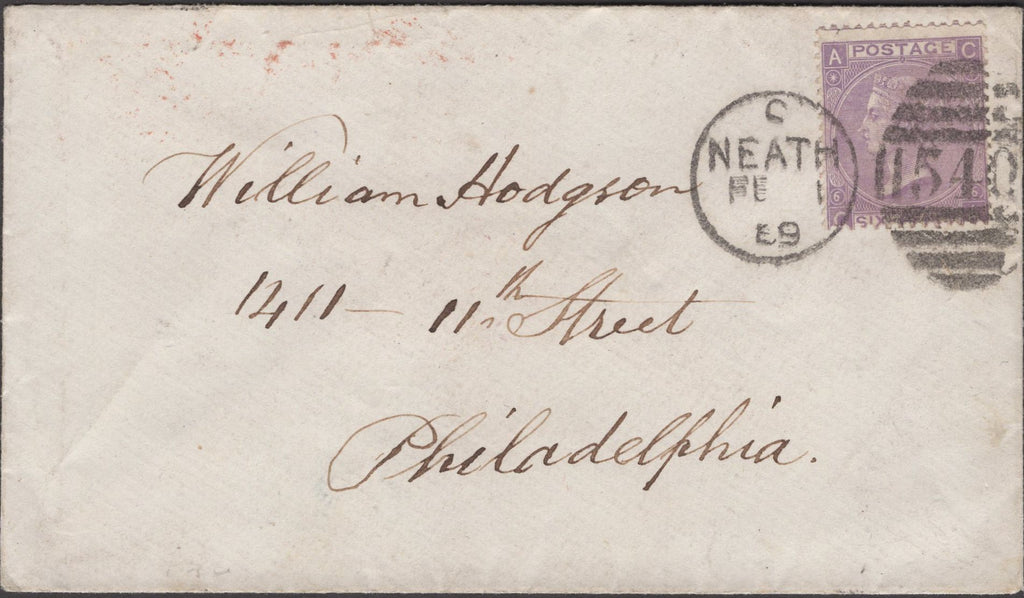 A POSTAGE C
C
NEATH
FE 1
69
540
6
SIX
William Hodgson
1411 — 11th Street
Philadelphia.